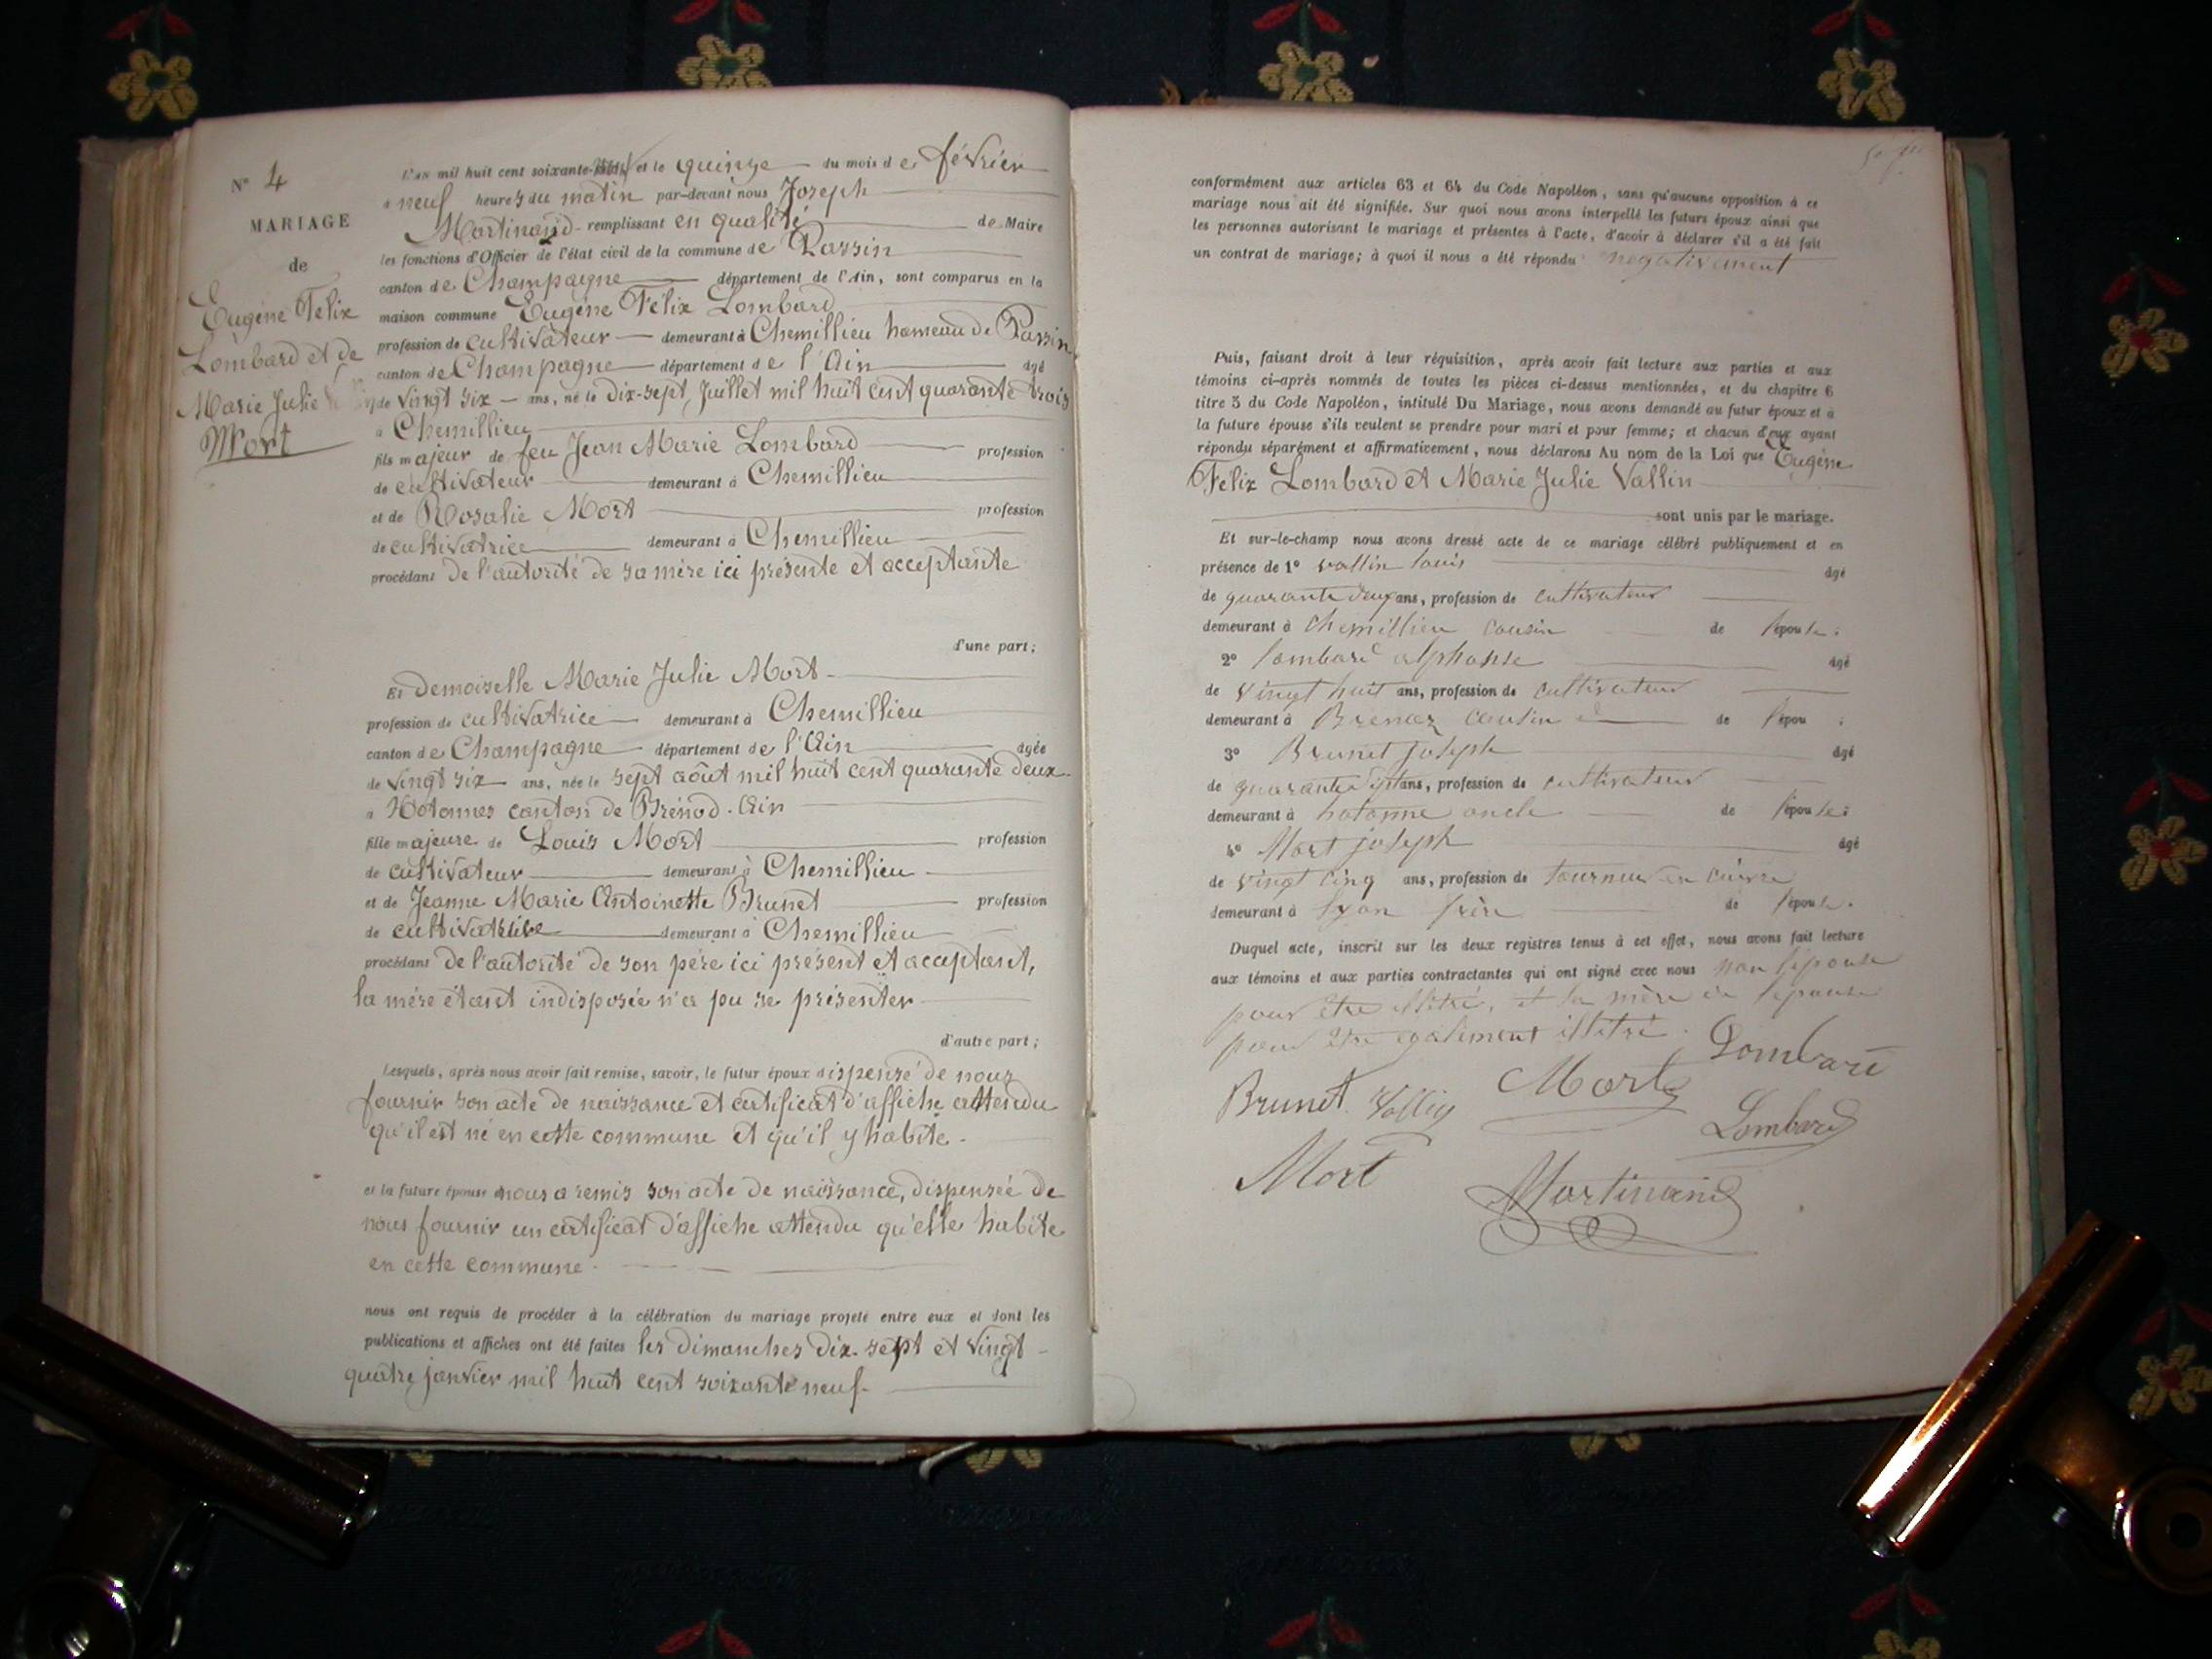 N° 4
MARIAGE
de
Eugène Félix
Lombard et de
Marie Julie
Mort
L'an mil huit cent soixante- et le quinze du mois de février
à neuf heures du matin par-devant nous Joseph
Martinand remplissant en qualité de Maire
les fonctions d'Officier de l'état civil de la commune de Passin
canton de Champagne département de l'Ain, sont comparus en la
maison commune Eugène Félix Lombard
profession de cultivateur demeurant à Chemillieu hameau de Passin
canton de Champagne département de l'Ain âgé
de vingt six ans, né le dix-sept Juillet mil huit cent quarante trois
à Chemillieu
fils majeur de feu Jean Marie Lombard profession
de cultivateur demeurant à Chemillieu
et de Rosalie Mort profession
de cultivatrice demeurant à Chemillieu
procédant de l'autorité de sa mère ici présente et acceptante
d'une part;
Et demoiselle Marie Julie Mort
profession de cultivatrice demeurant à Chemillieu
canton de Champagne département de l'Ain âgée
de vingt six ans, née le sept août mil huit cent quarante deux
à Hotonnes canton de Brénod. Ain
fille majeure de Louis Mort profession
de cultivateur demeurant à Chemillieu
et de Jeanne Marie Antoinette Brunet profession
de cultivatrice demeurant à Chemillieu
procédant de l'autorité de son père ici présent et acceptant,
la mère étant indisposée n'a pu se présenter
d'autre part;
Lesquels, après nous avoir fait remise, savoir, le futur époux dispensé de nous
fournir son acte de naissance et certificat d'affiche attendu
qu'il est né en cette commune et qu'il y habite.
et la future épouse nous a remis son acte de naissance, dispensée de
nous fournir un certificat d'affiche attendu qu'elle habite
en cette commune.
nous ont requis de procéder à la célébration du mariage projeté entre eux et dont les
publications et affiches ont été faites les dimanches dix-sept et vingt-
quatre janvier mil huit cent soixante neuf.
conformément aux articles 63 et 64 du Code Napoléon, sans qu'aucune opposition à ce
mariage nous ait été signifiée. Sur quoi nous avons interpellé les futurs époux ainsi que
les personnes autorisant le mariage et présentes à l'acte, d'avoir à déclarer s'il a été fait
un contrat de mariage; à quoi il nous a été répondu negativement
Puis, faisant droit à leur réquisition, après avoir fait lecture aux parties et aux
témoins ci-après nommés de toutes les pièces ci-dessus mentionnées, et du chapitre 6
titre 5 du Code Napoléon, intitulé Du Mariage, nous avons demandé au futur époux et à
la future épouse s'ils veulent se prendre pour mari et pour femme; et chacun d'eux ayant
répondu séparément et affirmativement, nous déclarons Au nom de la Loi que Eugène
Félix Lombard et Marie Julie Vallin
sont unis par le mariage.
Et sur-le-champ nous avons dressé acte de ce mariage célébré publiquement et en
présence de 1° vallin louis âgé
de quarante deux ans, profession de cultivateur
demeurant à chemillieu cousin de l'épouse;
2° lombard alphonse âgé
de vingt huit ans, profession de cultivateur
demeurant à Brenaz cousin de l'épou ;
3° Brunet joseph âgé
de quarante sept ans, profession de cultivateur
demeurant à hotonne oncle de l'épouse;
4° Mort joseph âgé
de vingt cinq ans, profession de tourneur en cuivre
demeurant à lyon frère de l'épouse.
Duquel acte, inscrit sur les deux registres tenus à cet effet, nous avons fait lecture
aux témoins et aux parties contractantes qui ont signé avec nous non l'epouse
pour etre illitré, et la mère de l'epouse
pour etre egalement illitré.
Lombard
Brunet Vallin Mort
Lombard
Mort
Martinand